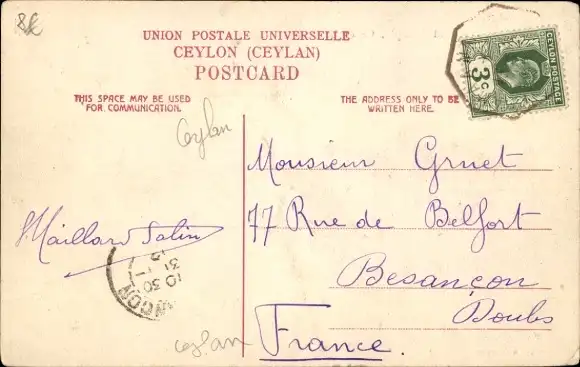 8€
UNION POSTALE UNIVERSELLE
CEYLON (CEYLAN)
POSTCARD
THIS SPACE MAY BE USED
FOR COMMUNICATION.
THE ADDRESS ONLY TO BE
WRITTEN HERE.
CEYLON POSTAGE
3c
Ceylan
Monsieur Gruet
77 Rue de Belfort
Besançon
Doubs
France.
Maillard Salin
10 30
31
Ceylan